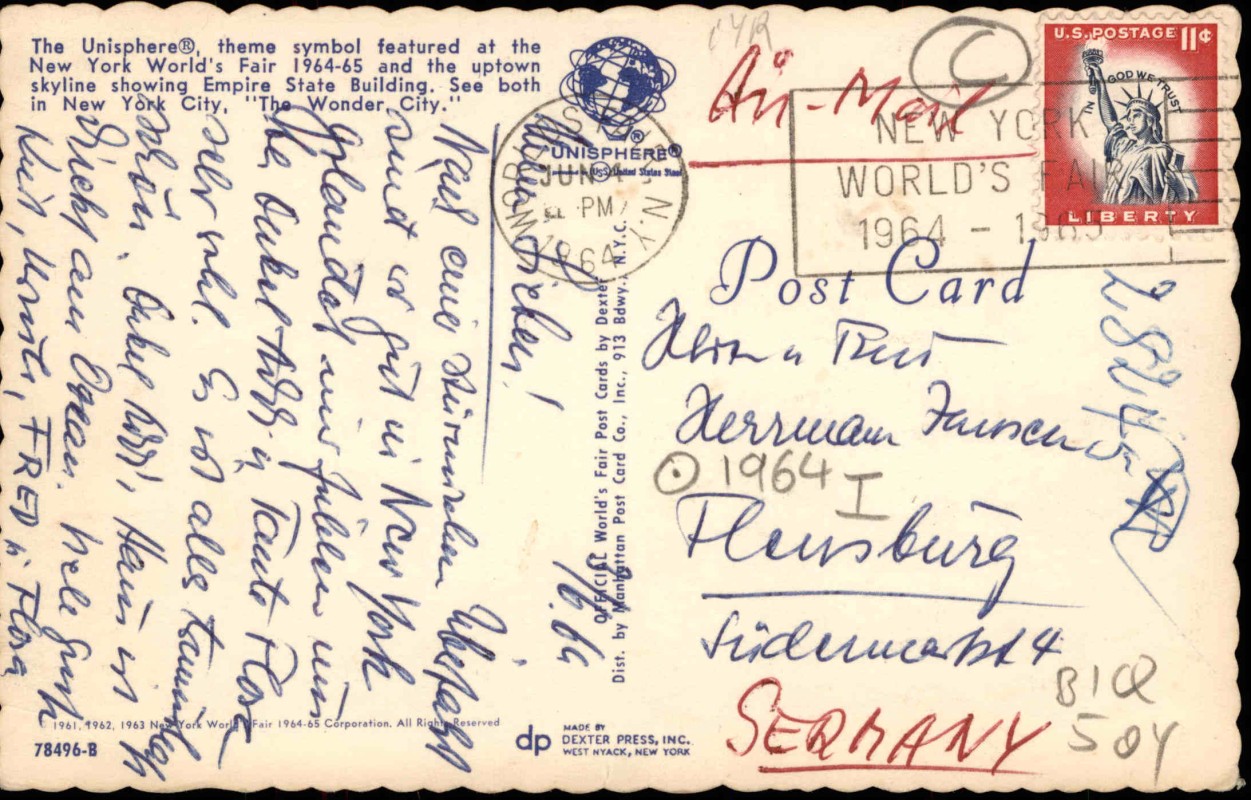 The Unisphere®, theme symbol featured at the
New York World's Fair 1964-65 and the uptown
skyline showing Empire State Building. See both
in New York City, "The Wonder City."
UNISPHERE®
(USS) United States Steel
JUN
PM
1964
N.Y.
Air-Mail
C
NEW YORK
WORLD'S FAIR
1964 - 1965
U.S. POSTAGE 11¢
IN GOD WE TRUST
LIBERTY
Post Card
Herrn u
Herrman Jansen
⊙ 1964 I
Flensburg
Südermarkt 4
GERMANY
B1Q
504
OFFICIAL World's Fair Post Cards by Dexter
Dist. by Manhattan Post Card Co., Inc., 913 Bdwy., N.Y.C.
/6.64
Nach einer stürmischen Überfahrt
sind wir gut in New York
gelandet und fühlen uns
bei Onkel u Tante Flora
sehr wohl. Es ist alles
schön. Onkel Haus in
direkt am Ozean. Viele Grüße
FRED u. Flora
© 1961, 1962, 1963 New York World's Fair 1964-65 Corporation. All Rights Reserved
78496-B
dp
MADE BY
DEXTER PRESS, INC.
WEST NYACK, NEW YORK